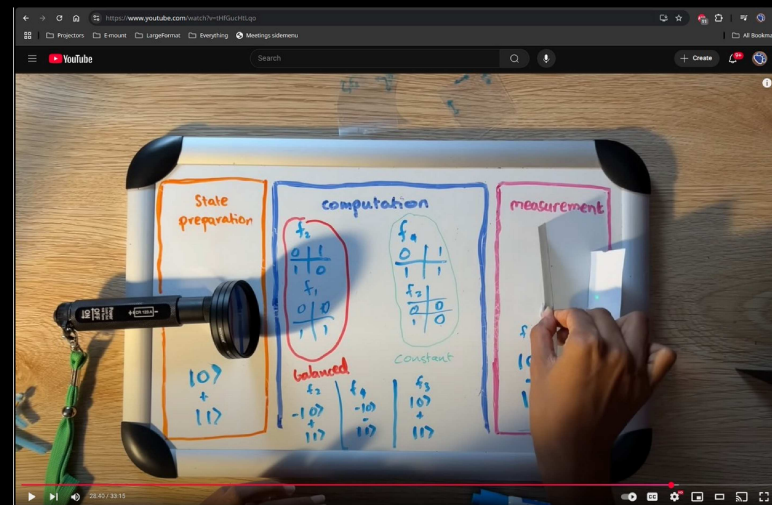 https://www.youtube.com/watch?v=tHfGucHtLqo
Projectors E-mount LargeFormat Everything Meetings sidemenu
All Bookma
YouTube
Search
Create
9+
State
preparation
|0⟩
+
|1⟩
computation
f₂
0 1
1 0
f₁
0 0
1 1
balanced
f₄
0 1
1 1
0 0
1 0
constant
f₂ f₄ f₃
-|0⟩ -|0⟩ |0⟩
+ - +
|1⟩ |1⟩ |1⟩
measurement
OFF
ON
28:40 / 33:15